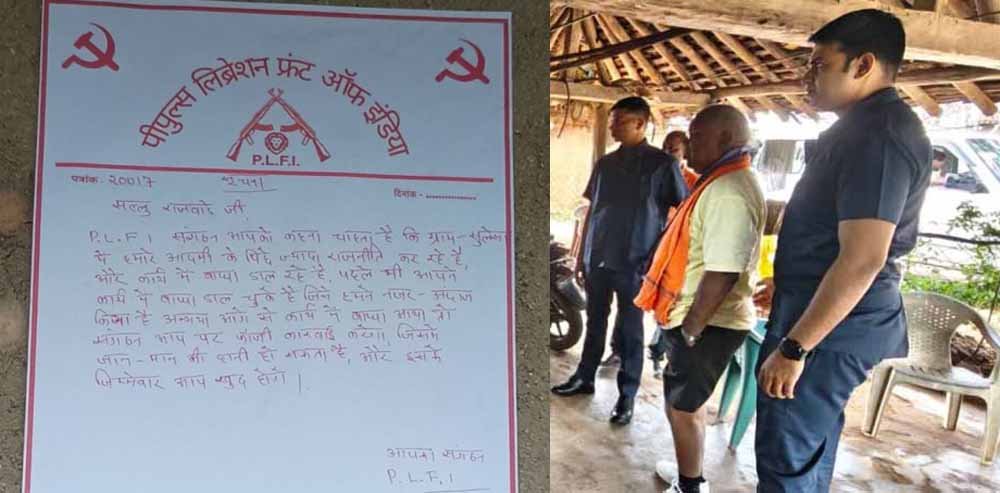 पीपुल्स लिब्रेशन फ्रंट ऑफ इंडिया
P.L.F.I.
पत्रांक- 20017 सूचना दिनांक- ..............
सल्लु राजवाडे जी,
P.L.F.I संगठन आपको कहना चाहता है कि ग्राम-
में हमारे आदमी के विरुद्ध ज्यादा राजनीति कर रहे है,
और कार्य में बाधा डाल रहे है, पहले भी आपने
कार्य में बाधा डाल चुके है जिसे हमने नजर-अंदाज
किया है अन्यथा आगे से कार्य में बाधा आया तो
संगठन आप पर फौजी कारवाई करेगा, जिसमे
जान-माल की हानी हो सकता है, और इसके
जिम्मेवार आप खुद होंगे।
आपका संगठन
P.L.F.I